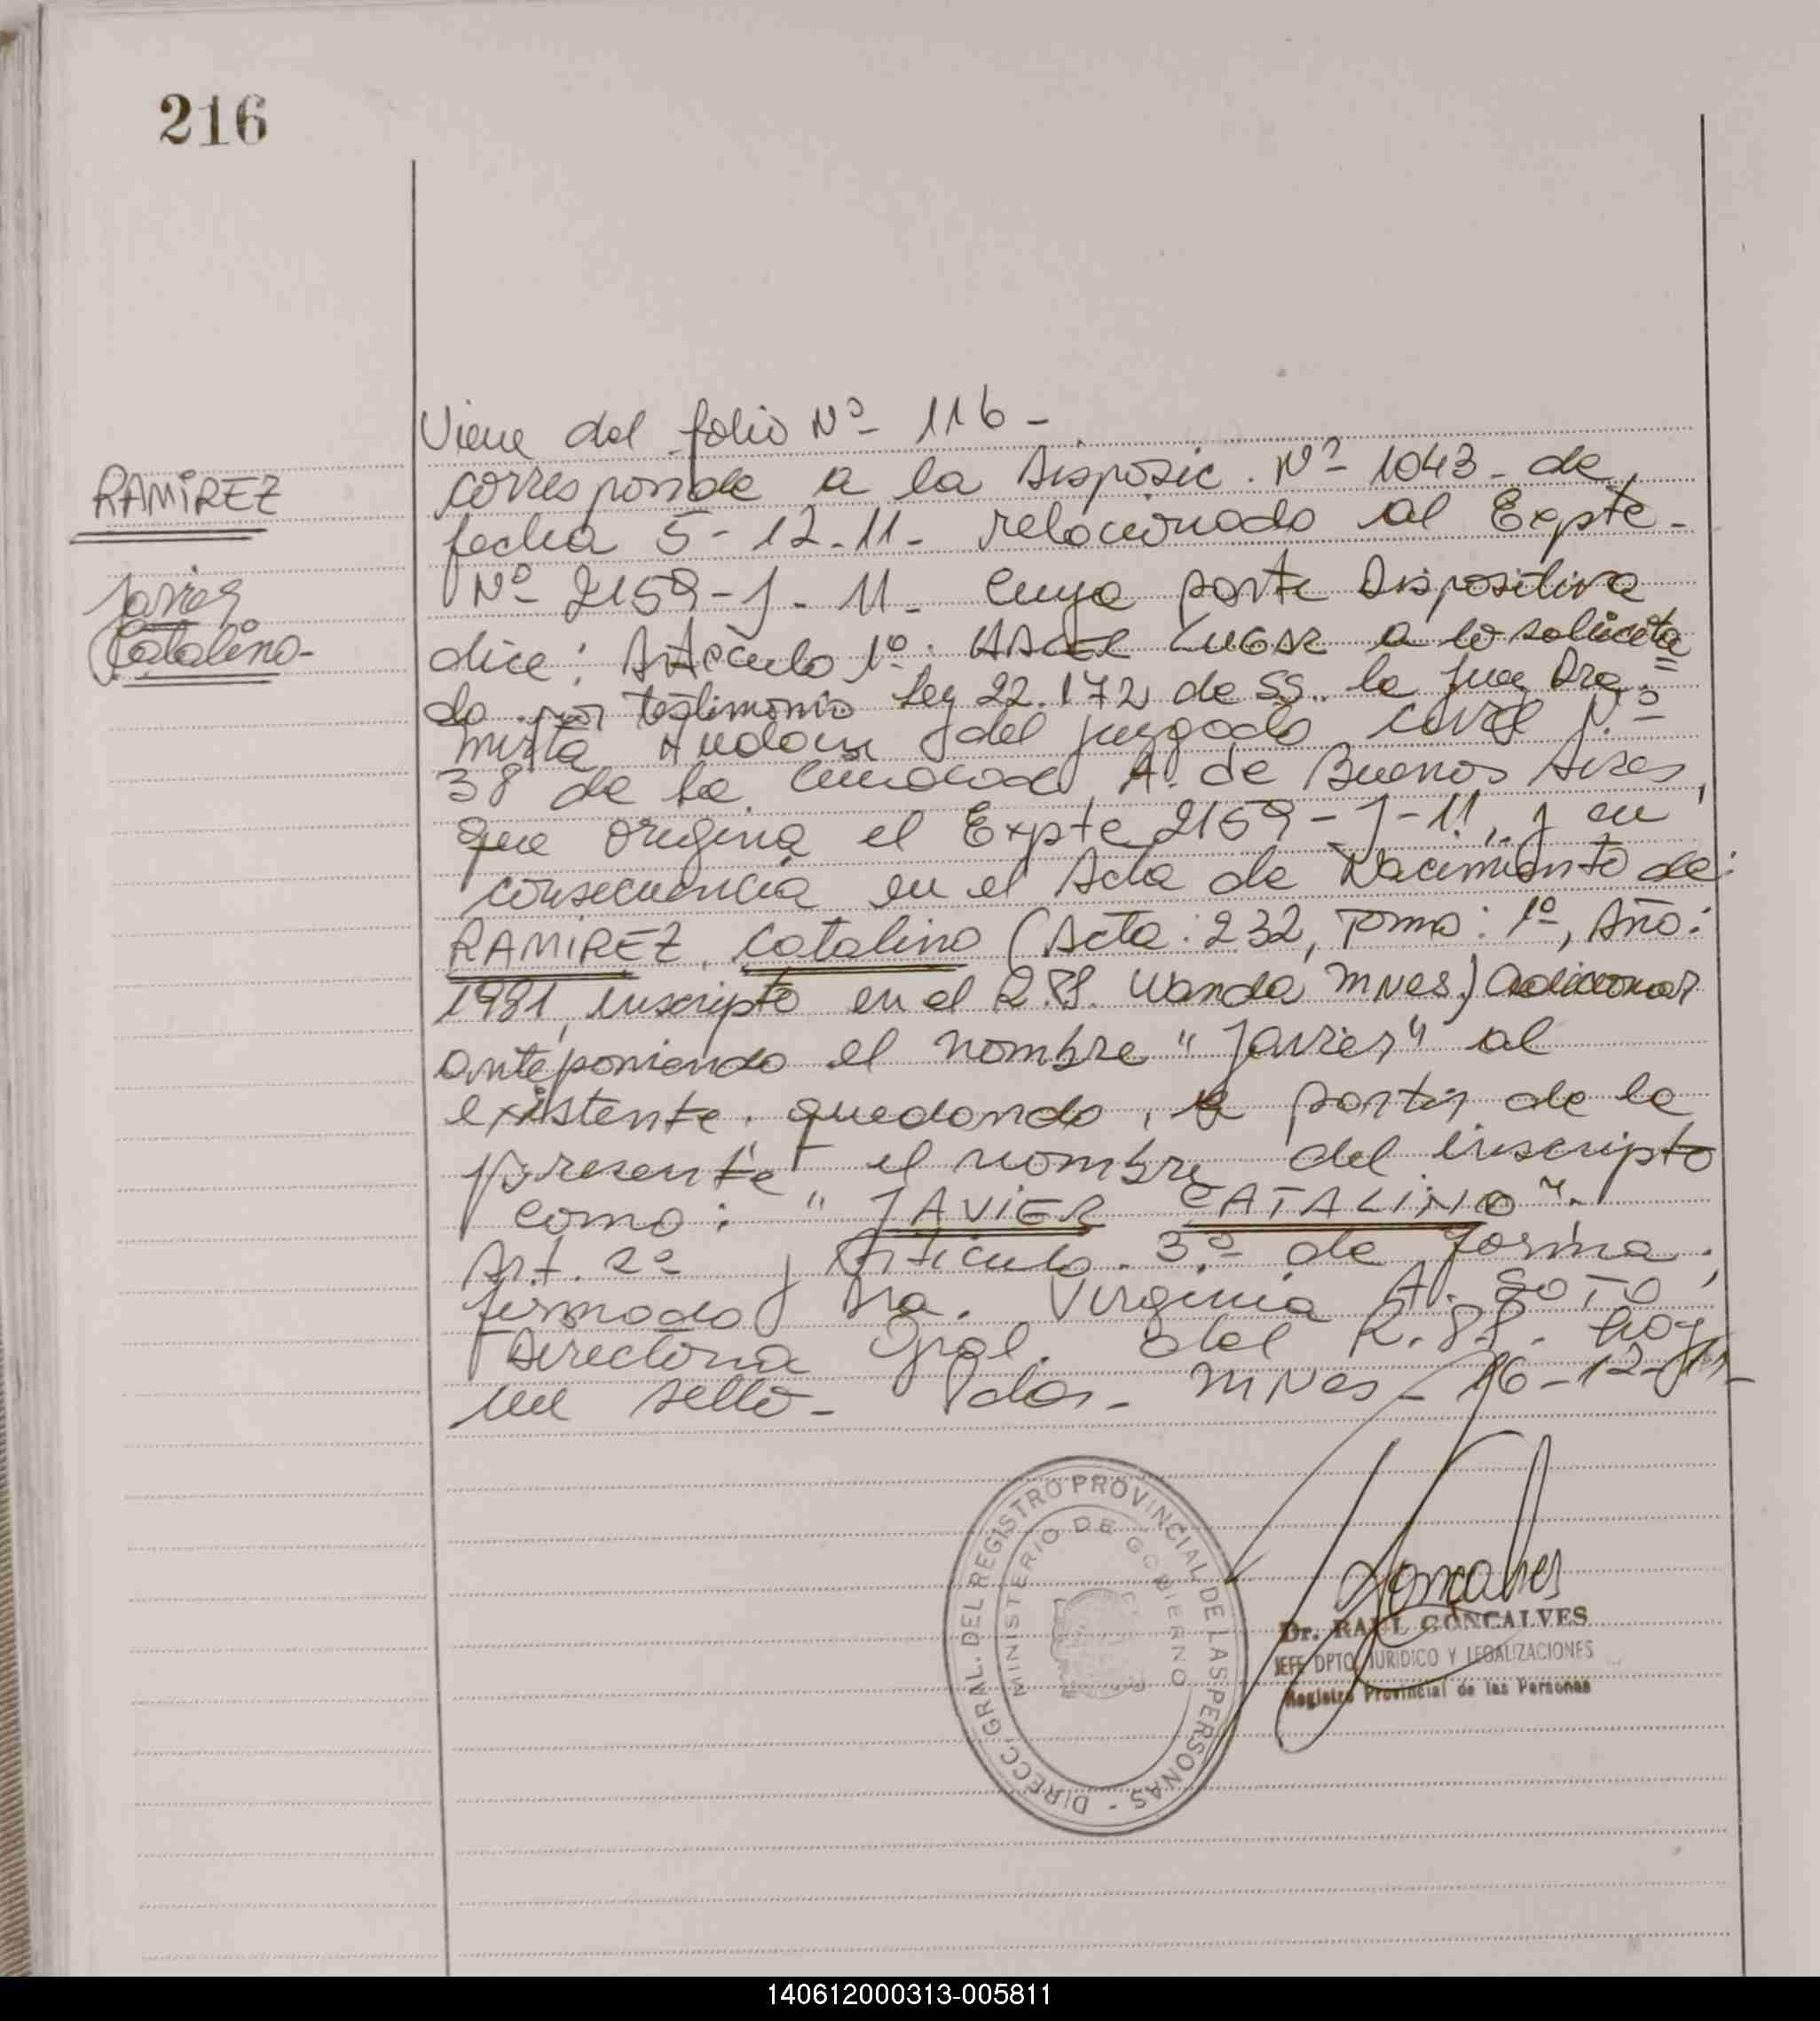 216
RAMIREZ
Javier
Catalino-
Viene del folio Nº 116-
corresponde a la Disposic. Nº 1043- de
fecha 5-12-11- relacionado al Expte-
Nº 2159-J-11- cuya parte Dispositiva
dice: Artículo 1º. HACER LUGAR a lo solicita=
do por testimonio Ley 22.172 de SS. la Juez Dra.
Mirta del juzgado civil Nº
38 de la ciudad A. de Buenos Aires,
que origina el Expte 2159-J-11, y en
consecuencia en el Acta de Nacimiento de:
RAMIREZ, Catalino (Acta: 232, Tomo: 1º, Año:
1981, inscripto en el R.PP. Wanda, Mnes.) adicionar
anteponiendo el nombre "Javier" al
existente. quedando, a partir de la
presente el nombre del inscripto
como: "JAVIER CATALINO".
Art. 2º y Artículo 3º de forma.
firmado Dra. Virginia A. SOTO,
Directora Gral. del R.PP. hay
un sello- Pdas- Mnes- 16-12-11-
DIRECC. GRAL. DEL REGISTRO PROVINCIAL DE LAS PERSONAS -
MINISTERIO DE GOBIERNO
Goncalves
Dr. RAUL GONCALVES
JEFE DPTO. JURIDICO Y LEGALIZACIONES
Registro Provincial de las Personas
140612000313-005811